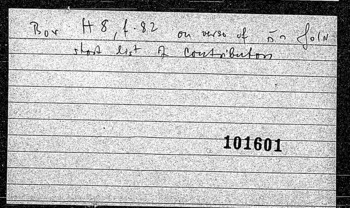 Box H8, f. 82 on verso of
short list of contributors
101601